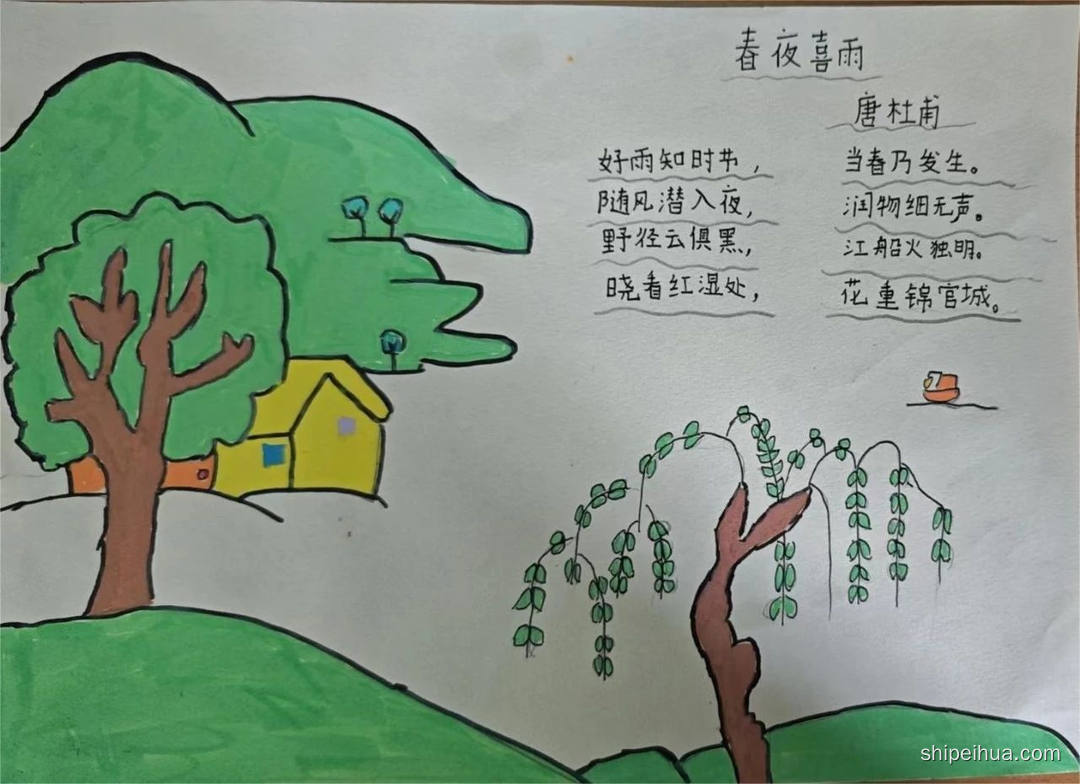 春夜喜雨
唐杜甫
好雨知时节，当春乃发生。
随风潜入夜，润物细无声。
野径云俱黑，江船火独明。
晓看红湿处，花重锦官城。
shipeihua.com